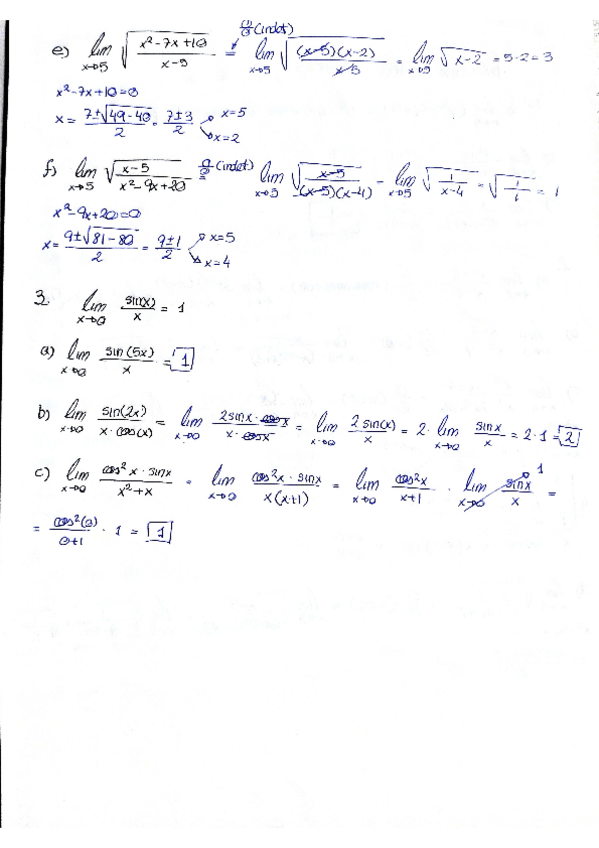 0/0 (indet)
e) lim x→5 √((x²-7x+10)/(x-5)) = lim x→5 √(((x-5)(x-2))/(x-5)) = lim x→5 √(x-2) = 5-2 = 3
x²-7x+10=0
x = (7±√(49-40))/2 = (7±3)/2 x=5
x=2
f) lim x→5 √((x-5)/(x²-9x+20)) 0/0 (indet) lim x→5 √((x-5)/((x-5)(x-4))) = lim x→5 √(1/(x-4)) = √(1/1) = 1
x²-9x+20=0
x = (9±√(81-80))/2 = (9±1)/2 x=5
x=4
3. lim x→0 sin(x)/x = 1
a) lim x→0 sin(5x)/x = 1
b) lim x→0 sin(2x)/(x·cos(x)) = lim x→0 (2sinx·cosx)/(x·cosx) = lim x→0 2sin(x)/x = 2· lim x→0 sinx/x = 2·1 = 2
c) lim x→0 (cos²x·sinx)/(x²+x) = lim x→0 (cos²x·sinx)/(x(x+1)) = lim x→0 cos²x/(x+1) · lim x→0 sinx/x 1 =
= cos²(0)/(0+1) · 1 = 1